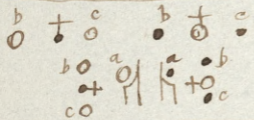 b + c b + c
b a a b
+ +
c c